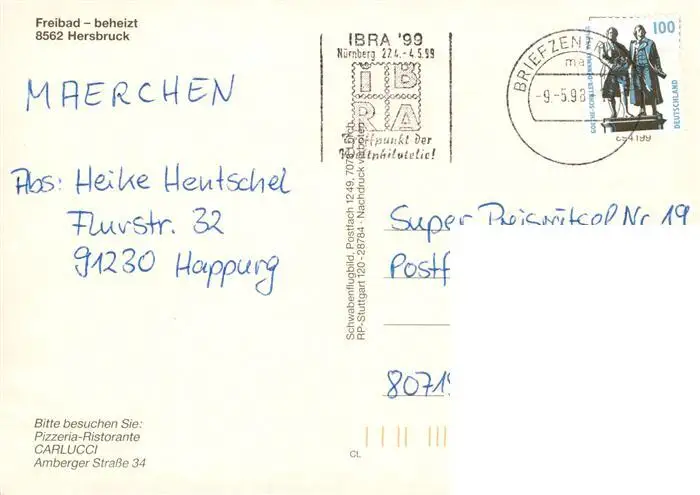 Freibad – beheizt
8562 Hersbruck
MAERCHEN
Abs: Heike Hentschel
Flurstr. 32
91230 Happurg
Bitte besuchen Sie:
Pizzeria-Ristorante
CARLUCCI
Amberger Straße 34
IBRA '99
Nürnberg 27.4.-4.5.99
IB
RA
Treffpunkt der
Weltphilatelie!
Schwabenflugbild, Postfach 1249,
RP-Stuttgart 120-28784 · Nachdruck verboten
BRIEFZEN
-9.-5.98
100
GOETHE-SCHILLER-DENKMAL
DEUTSCHLAND
Super Preisrätsel Nr 19
Postf
8071
CL